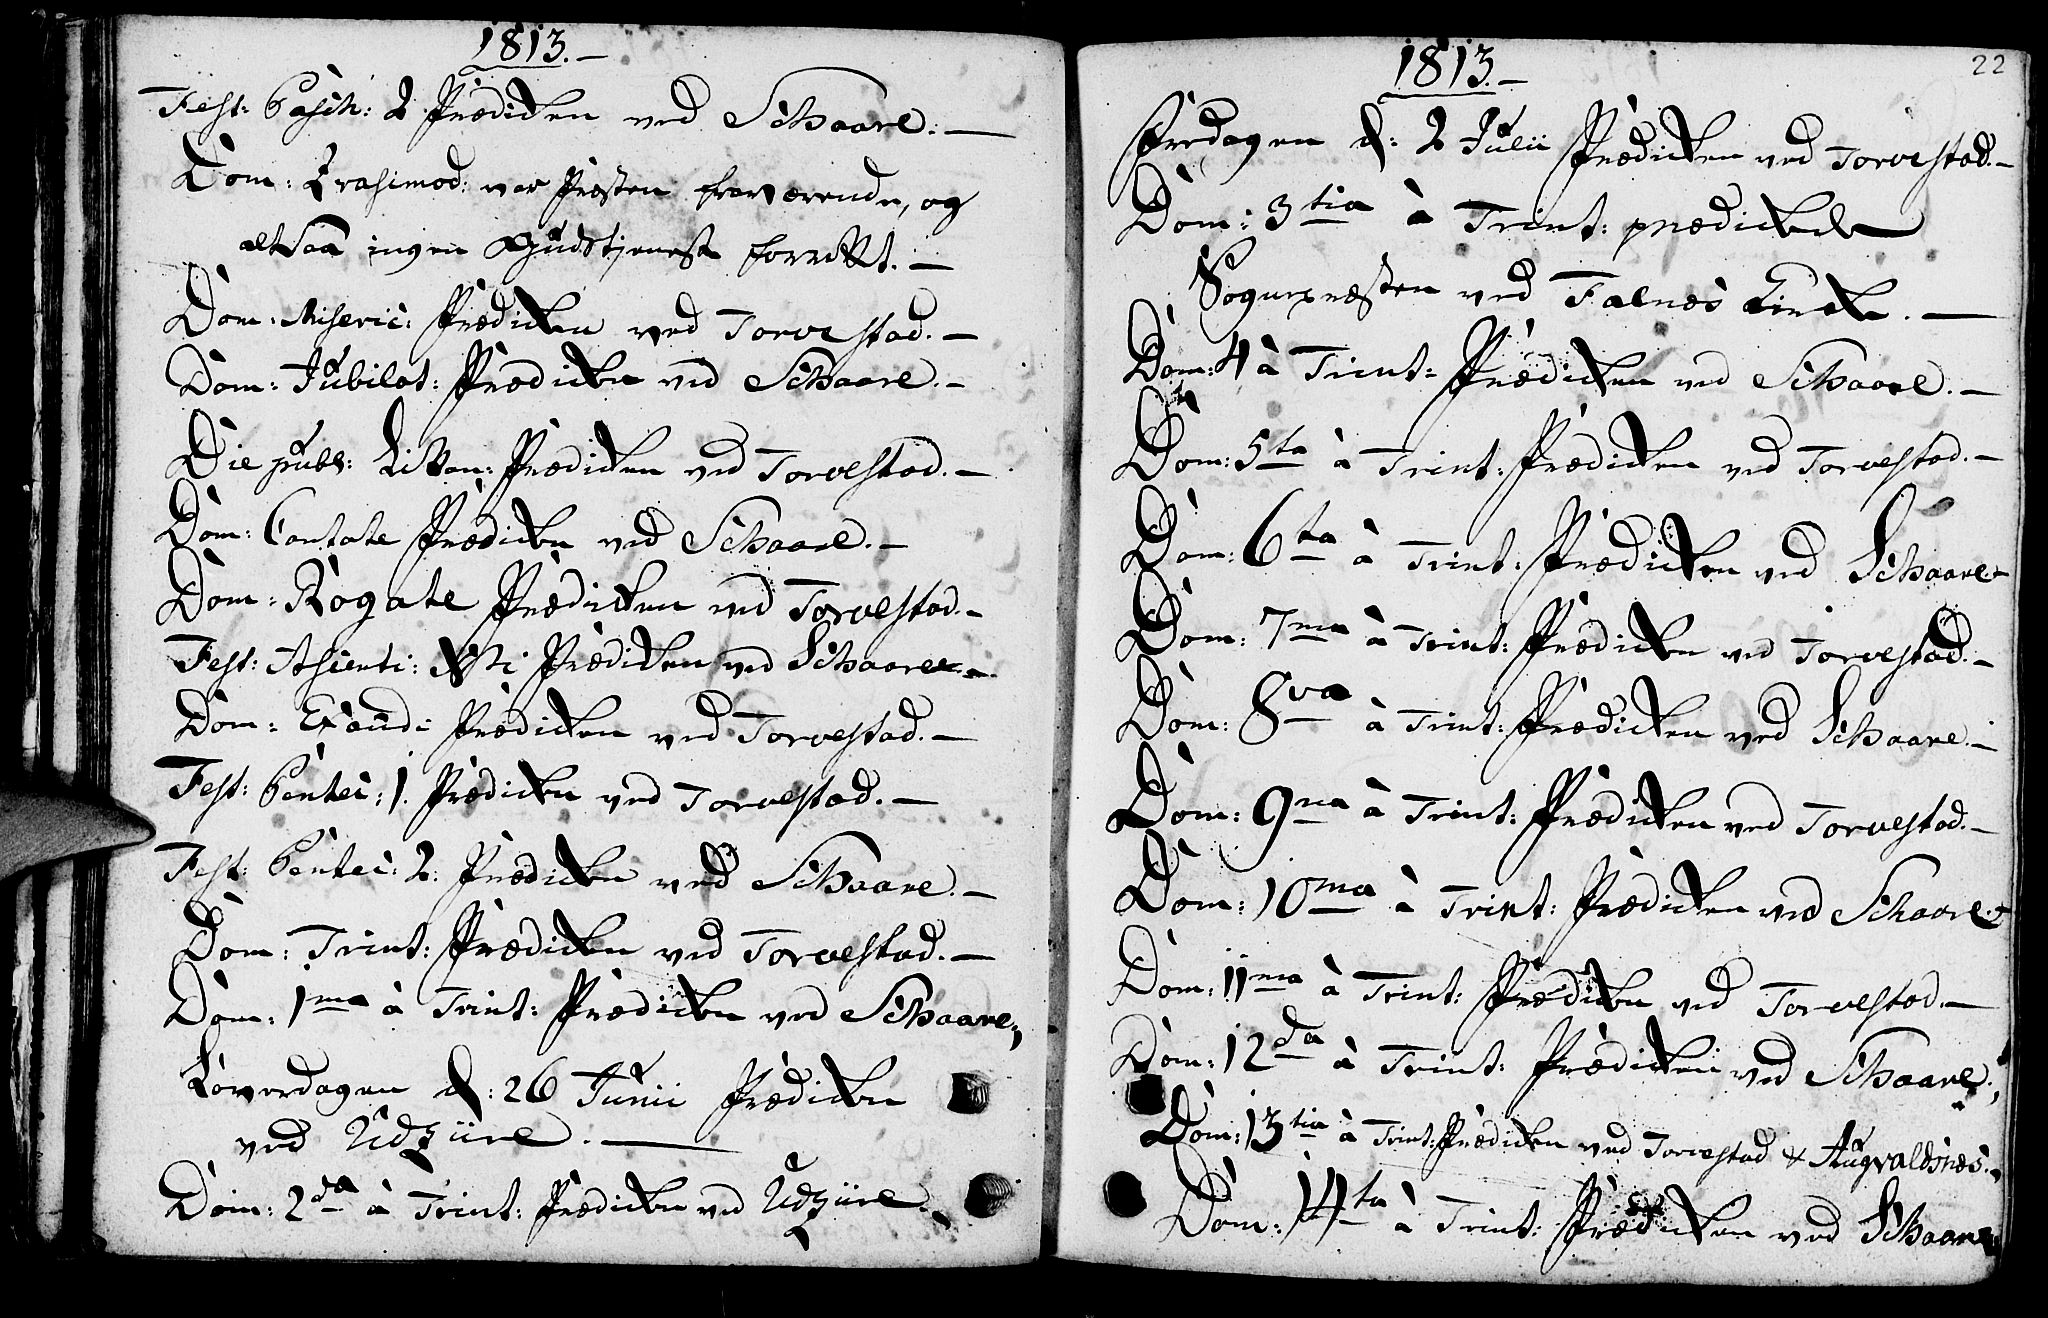 1813.-
Fest: Pasch: 2. Prædicken ved Schaare:-
Dom: Qvasimod: var Præsten fraværende, og
altsaa ingen Gudstjenest forrettet.-
Dom: Miseric: Prædicken ved Torvestad.-
Dom: Jubilat: Prædicken ved Schaare.-
Die publ: Littan: Prædicken ved Torvestad.-
Dom: Cantate Prædicken ved Schaare.-
Dom: Rogate Prædicken ved Torvestad.-
Fest: Ascenti: Xsti Prædicken ved Schaare.-
Dom: Exaudi Prædicken ved Torvestad.-
Fest: Pentec: 1. Prædicken ved Torvestad.-
Fest: Pentec: 2. Prædicken ved Schaare.-
Dom: Trint: Prædicken ved Torvestad.-
Dom: 1ma à Trint: Prædicken ved Schaare,
Løverdagen d: 26 Junii Prædicken
ved Udziire.-
Dom: 2da à Trint: Prædicken ved Udziire.-
22
1813.-
Fredagen d: 2 Julii Prædicken ved Torvestad.-
Dom: 3tia à Trint: prædickede
Sognepræsten ved Falnes Kircke.-
Dom: 4ta à Trint: Prædicken ved Schaare.-
Dom: 5ta à Trint: Prædicken ved Torvestad.-
Dom: 6ta à Trint: Prædicken ved Schaare.-
Dom: 7ma à Trint: Prædicken ved Torvestad.-
Dom: 8va à Trint: Prædicken ved Schaare.-
Dom: 9na à Trint: Prædicken ved Torvestad.-
Dom: 10ma à Trint: Prædicken ved Schaare.-
Dom: 11ma à Trint: Prædicken ved Torvestad.-
Dom: 12da à Trint: Prædicken ved Schaare.,
Dom: 13tia à Trint: Prædicken ved Torvestad & Augvaldsnes.-
Dom: 14ta à Trint: Prædicken ved Schaare